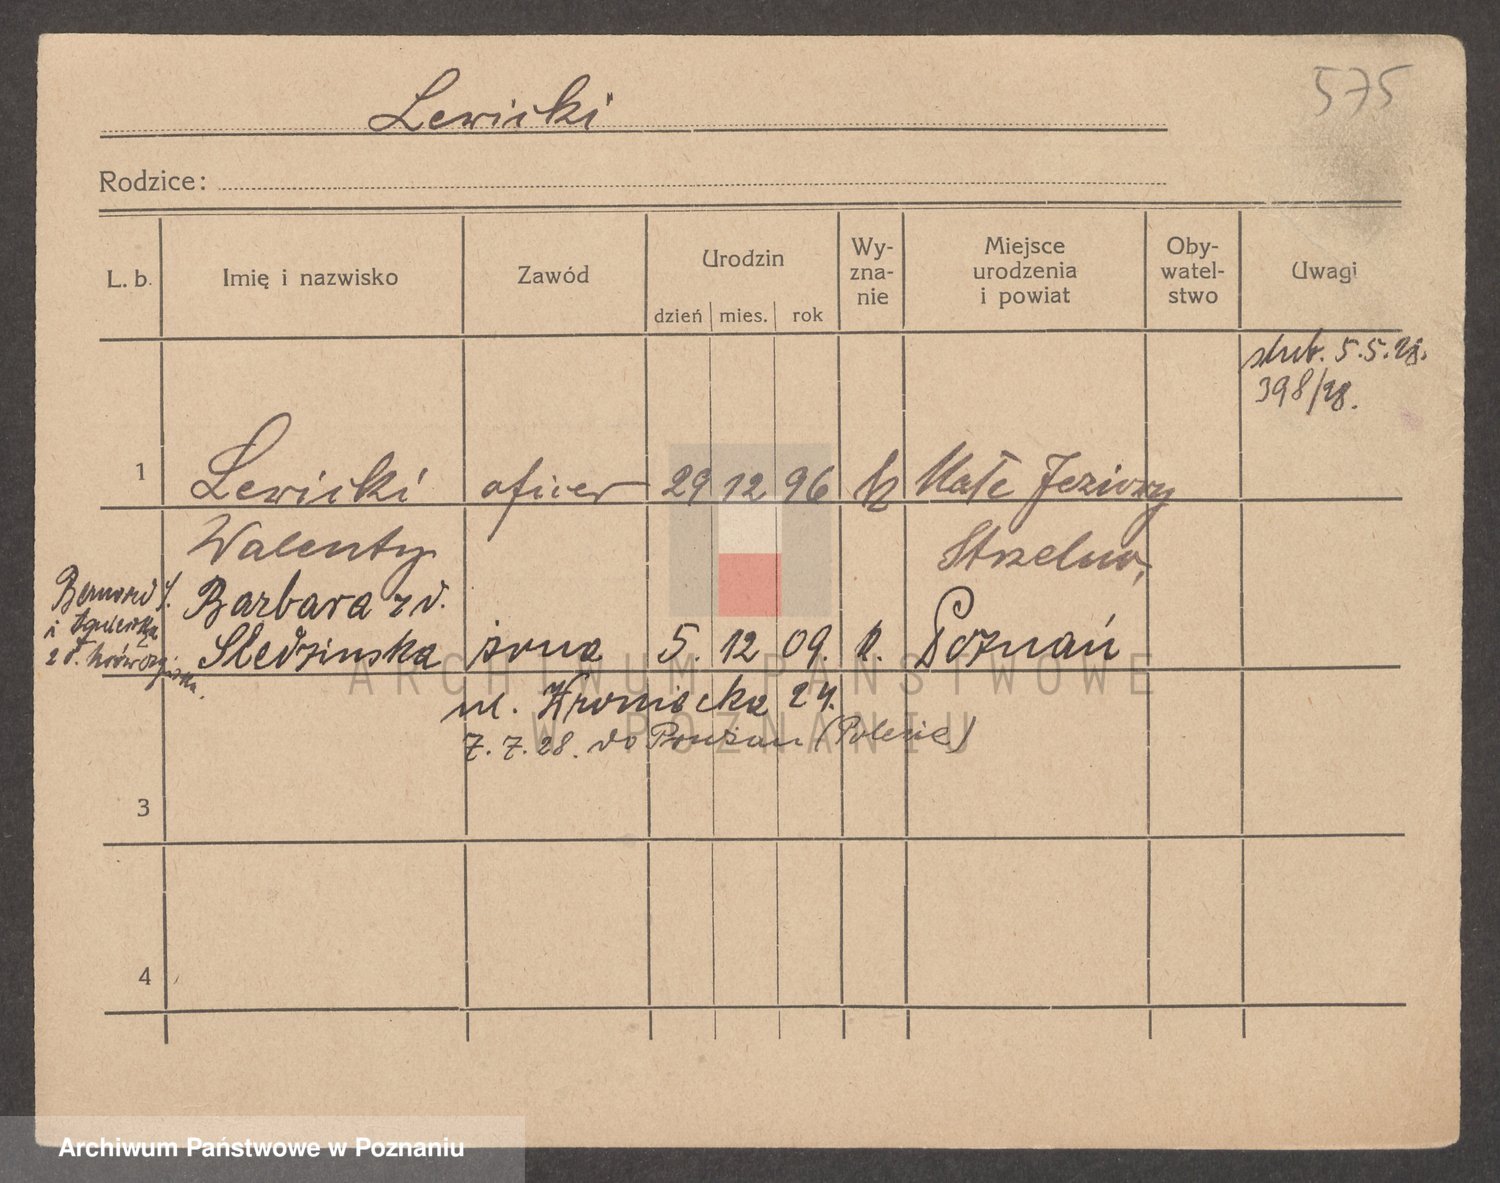 575
Lewicki
Rodzice:
L. b.
Imię i nazwisko
Zawód
Urodzin
dzień
mies.
rok
Wy-
zna-
nie
Miejsce
urodzenia
i powiat
Oby-
watel-
stwo
Uwagi
ślub. 5.5.28.
398/28.
1
Lewicki oficer 29 12 96 Małe Jeziory
Walenty Strzelno,
Barbara z d.
Śledzinska żona 5. 12 09. k. Poznań
Bernard Ś.
i Agnieszka
z d.
ul. Wroniecka 24.
7. 7. 28. do Prużan (Polesie)
3
4
ARCHIWUM PAŃSTWOWE
W POZNANIU
Archiwum Państwowe w Poznaniu